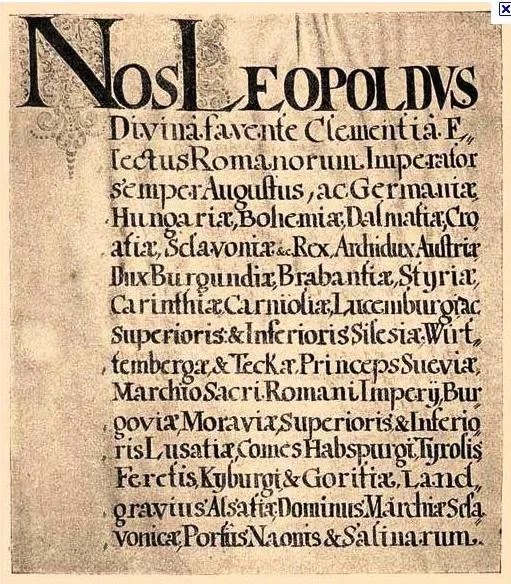 NOS LEOPOLDVS
Divinâ favente Clementiâ. E„
lectus Romanorum Imperator
semper Augustus, ac Germaniæ,
Hungariæ, Bohemiæ, Dalmatiæ, Cro
atiæ, Sclavoniæ &c. Rex, Archidux Austriæ
Dux Burgundiæ, Brabantiæ, Styriæ,
Carinthiæ, Carnioliæ, Lucemburgi, ac
Superioris & Inferioris Silesiæ, Wirt„
tembergæ, & Teckæ, Princeps Sueviæ,
Marchio Sacri Romani Imperij, Bur„
goviæ, Moraviæ, Superioris & Inferio„
ris Lusatiæ, Comes Habspurgi, Tyrolis
Feretis, Kyburgi & Goritiæ, Land„
gravius Alsatiæ, Dominus Marchiæ Scla„
vonicæ, Portûs Naonis & Salinarum.